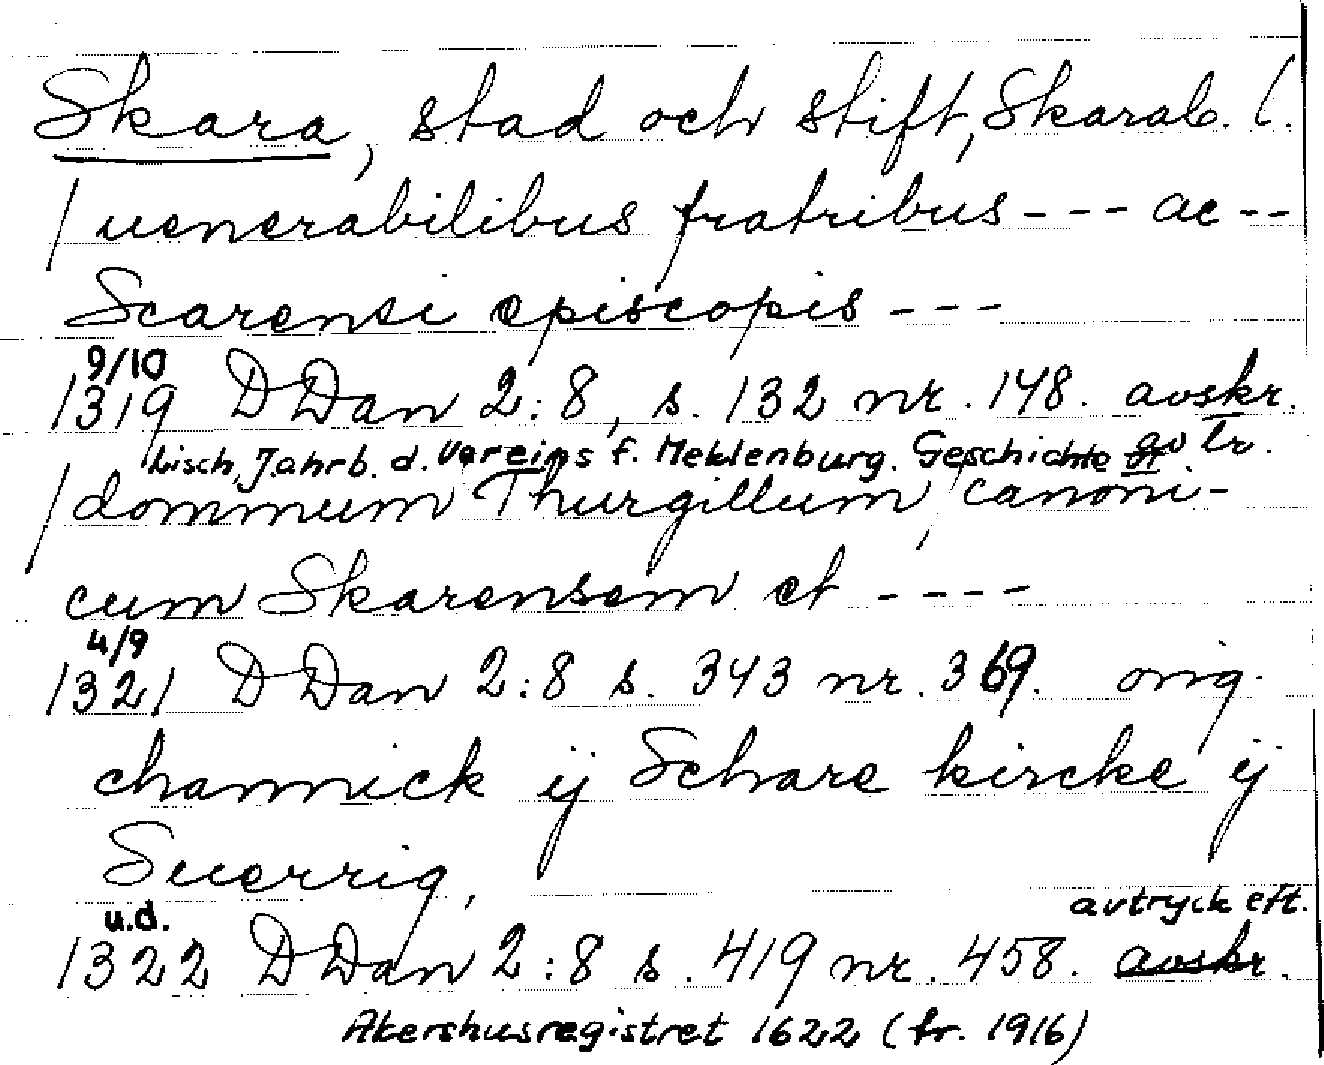 Skara, stad och stift, Skarab. l.
/uenerabilibus fratribus --- ac --
Scarensi episcopis ---
9/10
1319 DDan 2:8, s. 132 nr. 148. avskr.
Lisch, Jahrb. d. Vereins f. Meklenburg. Geschichte av tr.
/dominum Thurgillum, canoni-
cum Skarensem et ----
4/9
1321 DDan 2:8 s. 343 nr. 369. orig.
channick ij Schare kircke ij
Suerrig,
u.d. avtryck eft.
1322 DDan 2:8 s. 419 nr. 458. avskr.
Akershusregistret 1622 (tr. 1916)